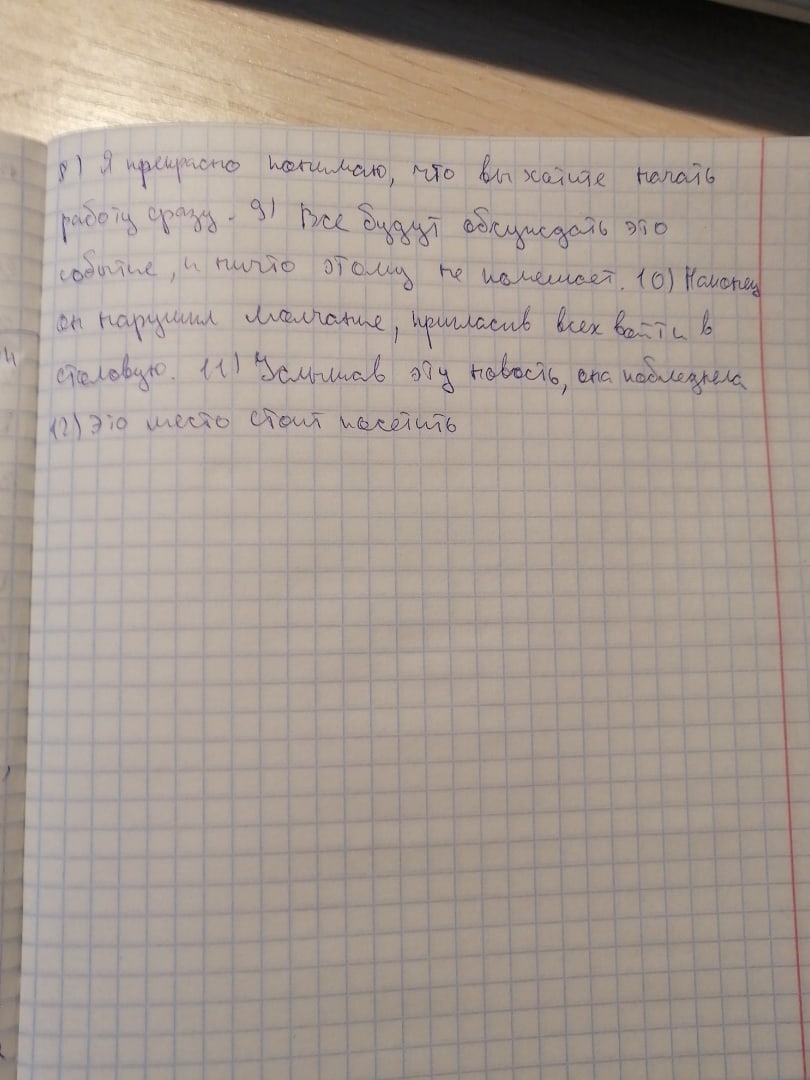 8) Я прекрасно понимаю, что вы хотите начать
работу сразу. 9) Все будут обсуждать это
событие, и ничто этому не помешает. 10) Наконец
он нарушил молчание, пригласив всех войти в
столовую. 11) Услышав эту новость, она побледнела
12) Это место стоит посетить